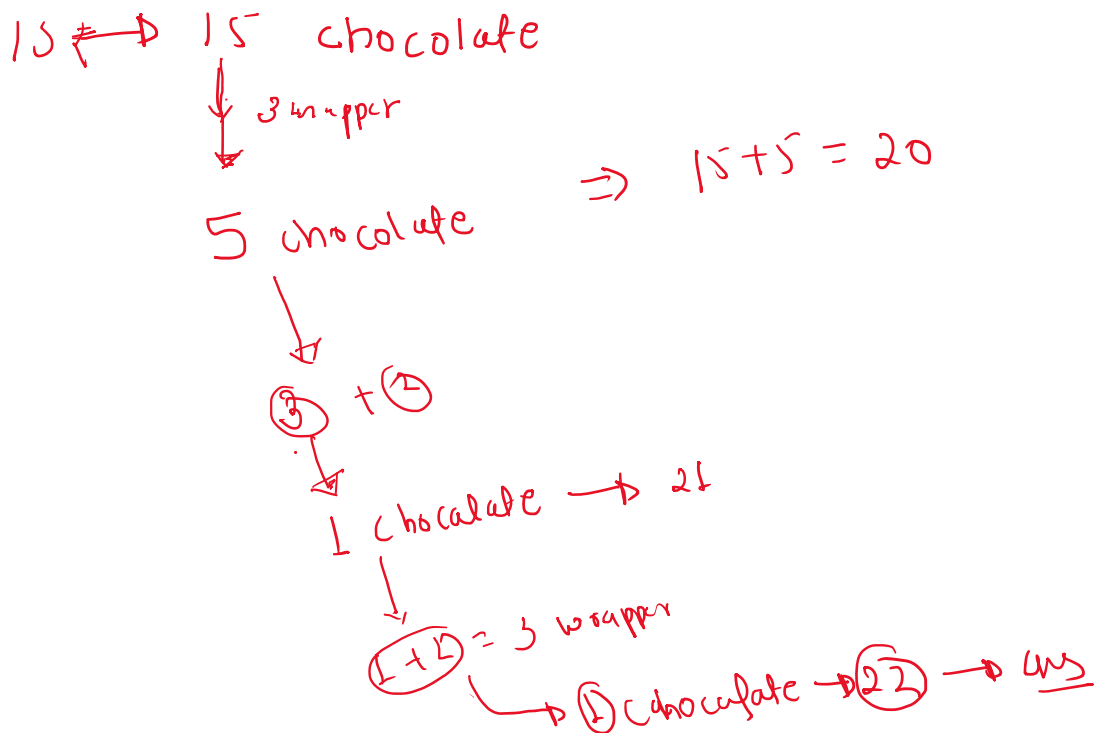 15₹ → 15 chocolate
3 wrapper
⇒ 15+5 = 20
5 chocolate
3 + 2
1 chocalate → 21
1+2 = 3 wrapper
1 chocolate → 22 → ans